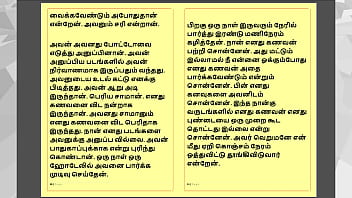 வைக்கவேண்டும் அபோதுதான்
என்றேன். அவனும் சரி என்றான்.
அவன் அவனது போட்டோவை
எடுத்து அனுப்பினான். அவன்
அனுப்பிய படங்களில் அவன்
நிர்வாணமாக இருப்பதும் வந்தது.
அவனுடைய உடல் கட்டு எனக்கு
பிடித்தது. அவன் ஆறு அடி
இருந்தான். பெரிய சாமான். எனது
கணவனை விட நன்றாக
இருந்தான். அவனது சாமானும்
எனது கணவனை விட பெரிதாக
இருந்தது. நான் எனது படங்களை
அவனுக்கு அனுப்ப வில்லை. அவன்
பாதுகாப்புக்காக என்று புரிந்து
கொண்டான். ஒரு நாள் ஒரு
ஹோட்டலில் அவனை பார்க்க
முடிவு செய்தேன்.
பிறகு ஒரு நாள் இருவரும் நேரில்
பார்த்து இரண்டு மணிநேரம்
கழித்தேன். நான் எனது கணவன்
பற்றி சொன்னேன். அது மட்டும்
இல்லாமல் நீ என்னை ஒக்கும்போது
எனது கணவன் அதை
பார்க்கவேண்டும் என்றும்
சொன்னேன். பின் எனது
கனவுகளை அவனிடம்
சொன்னேன். இந்த நான்கு
வருடங்களில் எனது கணவன் எனது
புண்டையை ஒரு முறை கூட
தொட்டது இல்லை என்று
சொன்னேன். அவர் வெறுமனே என்
மீது ஏறி கொஞ்சம் நேரம்
ஒத்துவிட்டு தூங்கிவிடுவார்
என்றேன்.